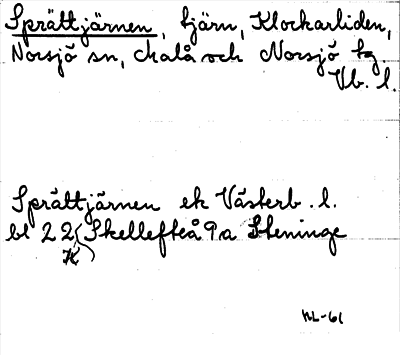 Sprättjärnen, tjärn, Klockarliden,
Norsjö sn, Malå och Norsjö tg.
Vb. l.
Sprättjärnen ek Västerb. l.
bl 22 Skellefteå 9a Steninge
K
NL-61